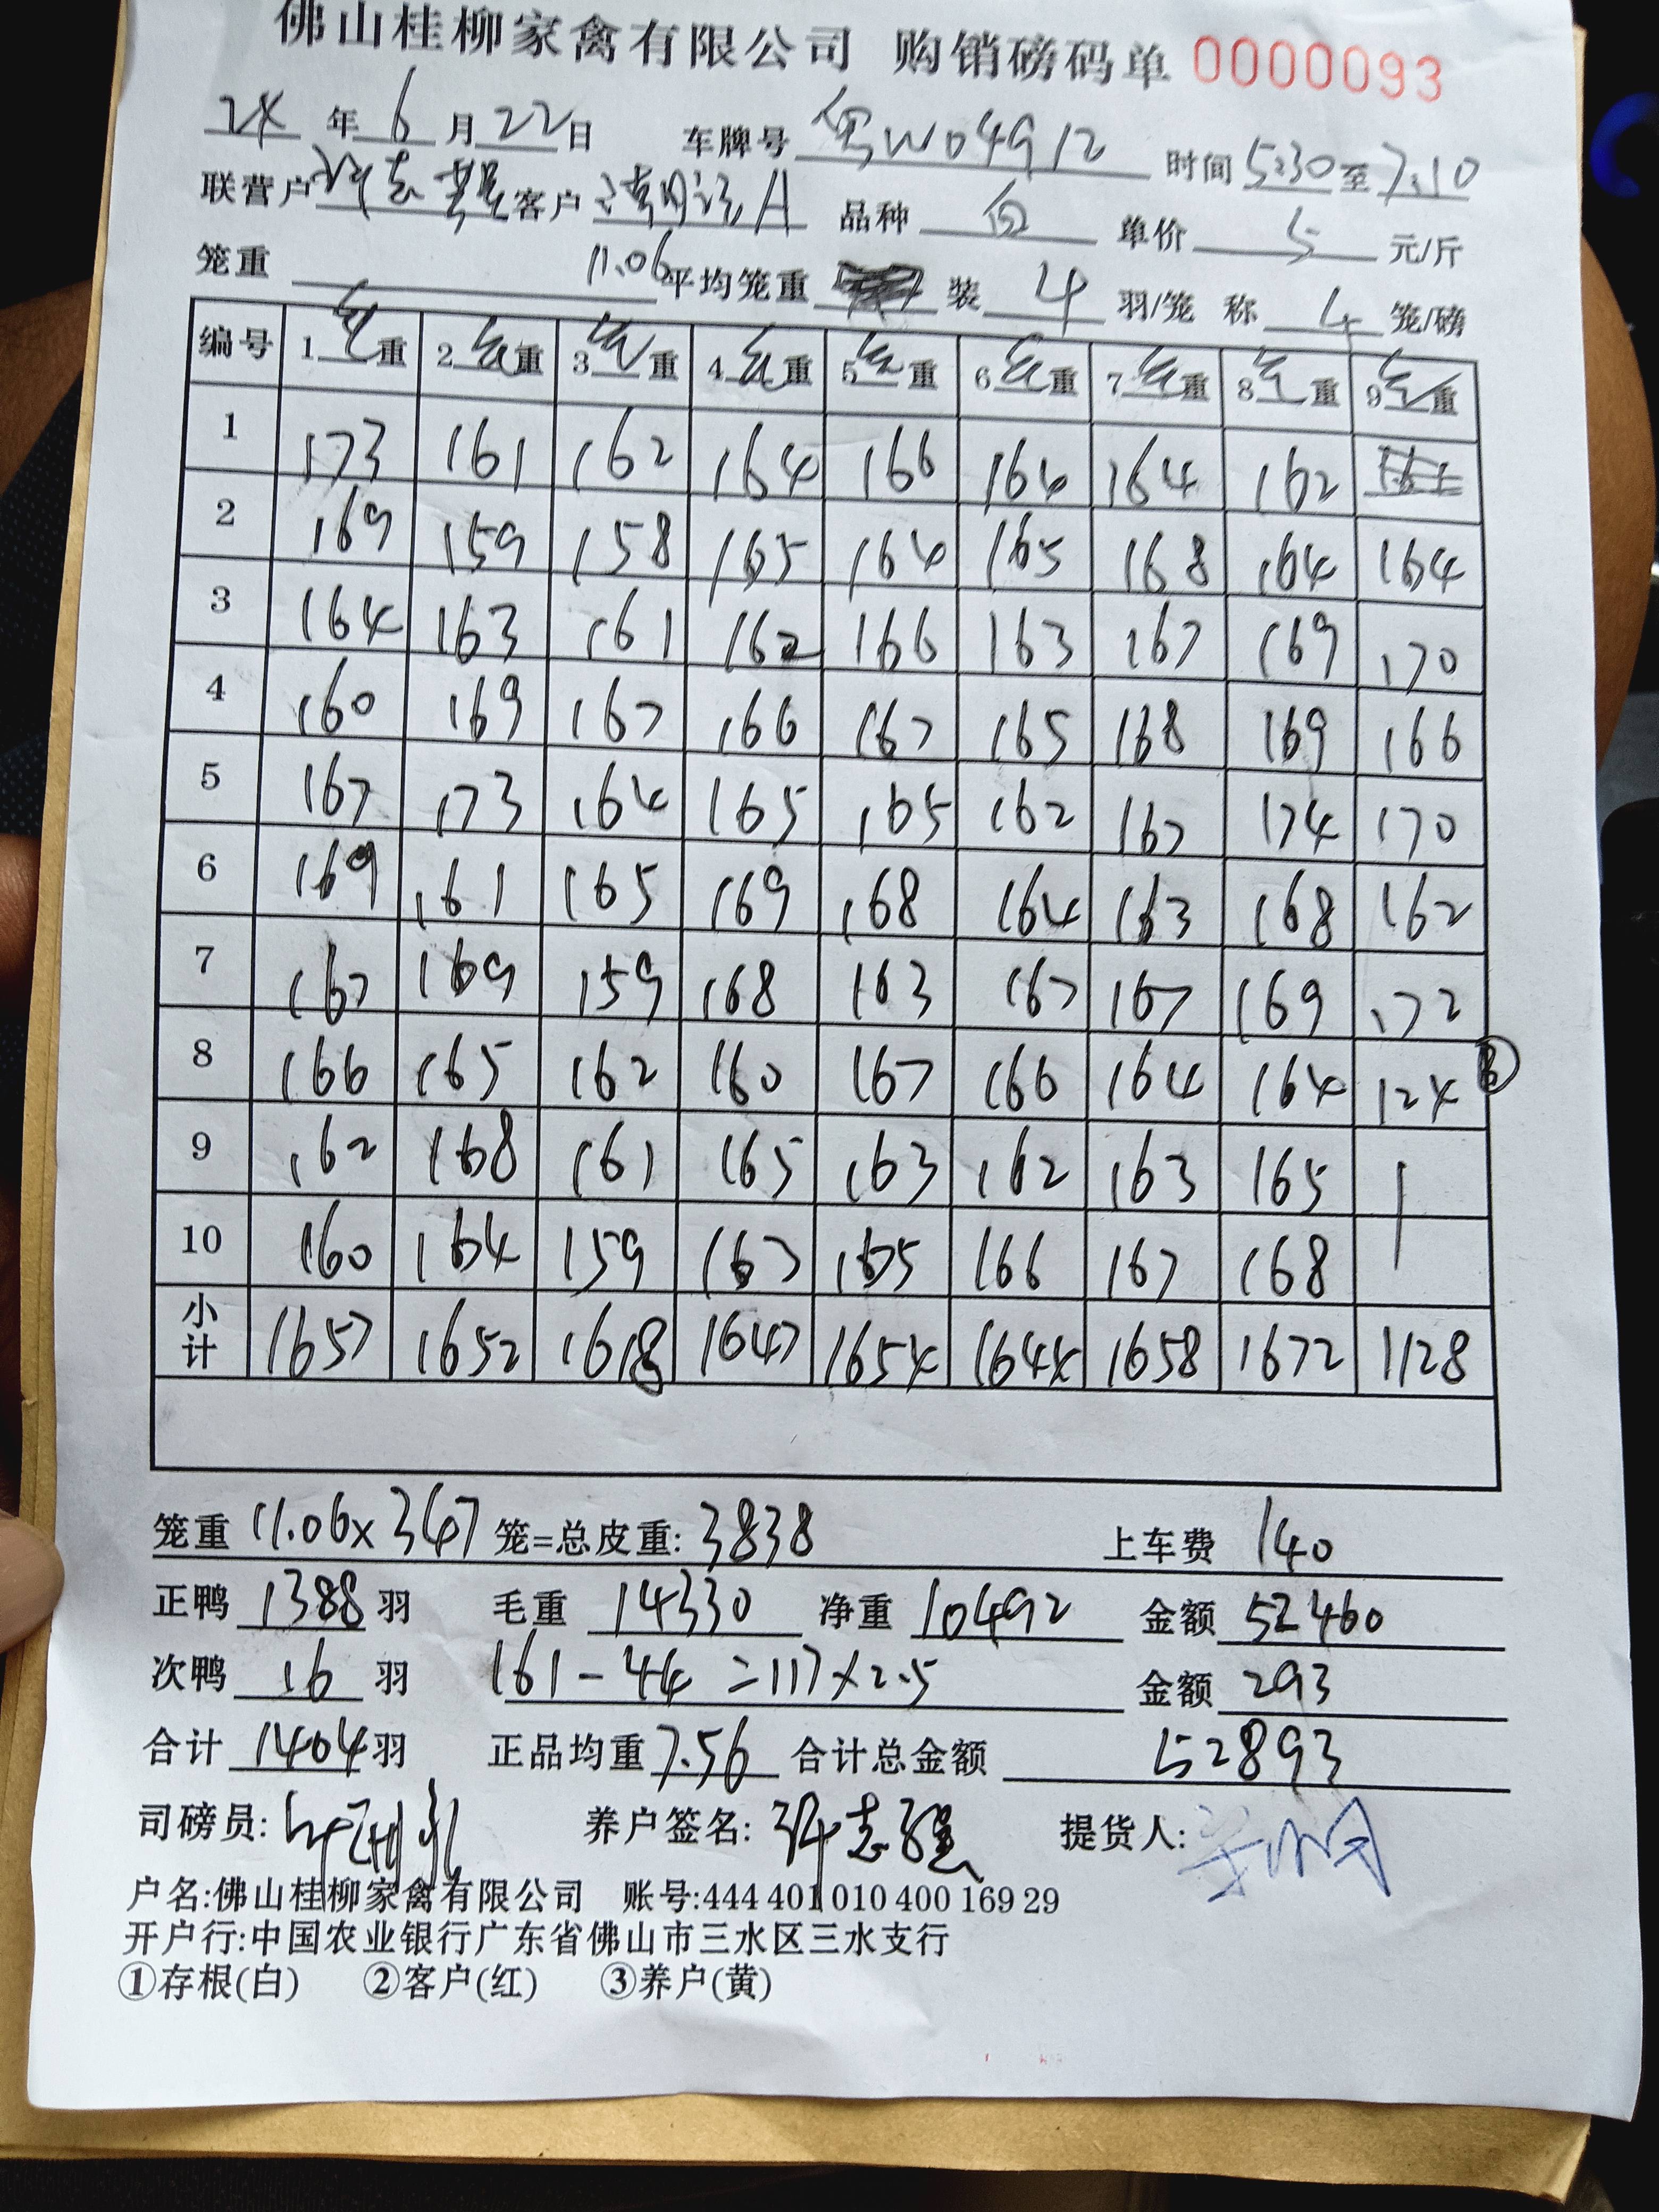 佛山桂柳家禽有限公司 购销磅码单 0000093
24 年 6 月 22 日 车牌号 粤W04912 时间 5:30 至 7:10
联营户 客户 A 品种 白 单价 5 元/斤
笼重 11.06 平均笼重 装 4 羽/笼 称 4 笼/磅
编号 1 毛 重 2 毛 重 3 毛 重 4 毛 重 5 毛 重 6 毛 重 7 毛 重 8 毛 重 9 毛 重
1 173 161 162 164 166 164 164 162
2 169 159 158 165 164 165 168 164 164
3 164 163 161 162 166 163 167 169 170
4 160 169 167 166 167 165 168 169 166
5 167 173 164 165 165 162 167 174 170
6 169 161 165 169 168 164 163 168 162
7 167 169 159 168 163 167 167 169 172
8 166 165 162 160 167 166 164 164 124
9 162 168 161 165 163 162 163 165
10 160 164 159 163 165 166 167 168
小计 1657 1652 1618 1647 1654 1644 1658 1672 1128
笼重 11.06x347 笼=总皮重: 3838 上车费 140
正鸭 1388 羽 毛重 14330 净重 10492 金额 52460
次鸭 16 羽 161-44=117x2.5 金额 293
合计 1404 羽 正品均重 7.56 合计总金额 52893
司磅员: 养户签名: 志强 提货人:
户名:佛山桂柳家禽有限公司 账号:444 401 010 400 169 29
开户行:中国农业银行广东省佛山市三水区三水支行
①存根(白) ②客户(红) ③养户(黄)